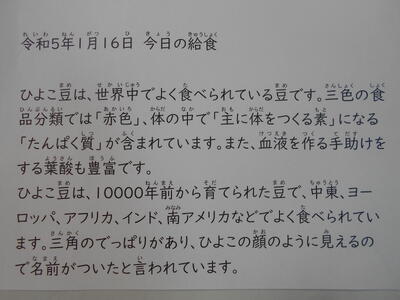 令和5年1月16日 今日の給食
ひよこ豆は、世界中でよく食べられている豆です。三色の食
品分類では「赤色」、体の中で「主に体をつくる素」になる
「たんぱく質」が含まれています。また、血液を作る手助けを
する葉酸も豊富です。
ひよこ豆は、10000年前から育てられた豆で、中東、ヨー
ロッパ、アフリカ、インド、南アメリカなどでよく食べられてい
ます。三角のでっぱりがあり、ひよこの顔のように見えるの
で名前がついたと言われています。